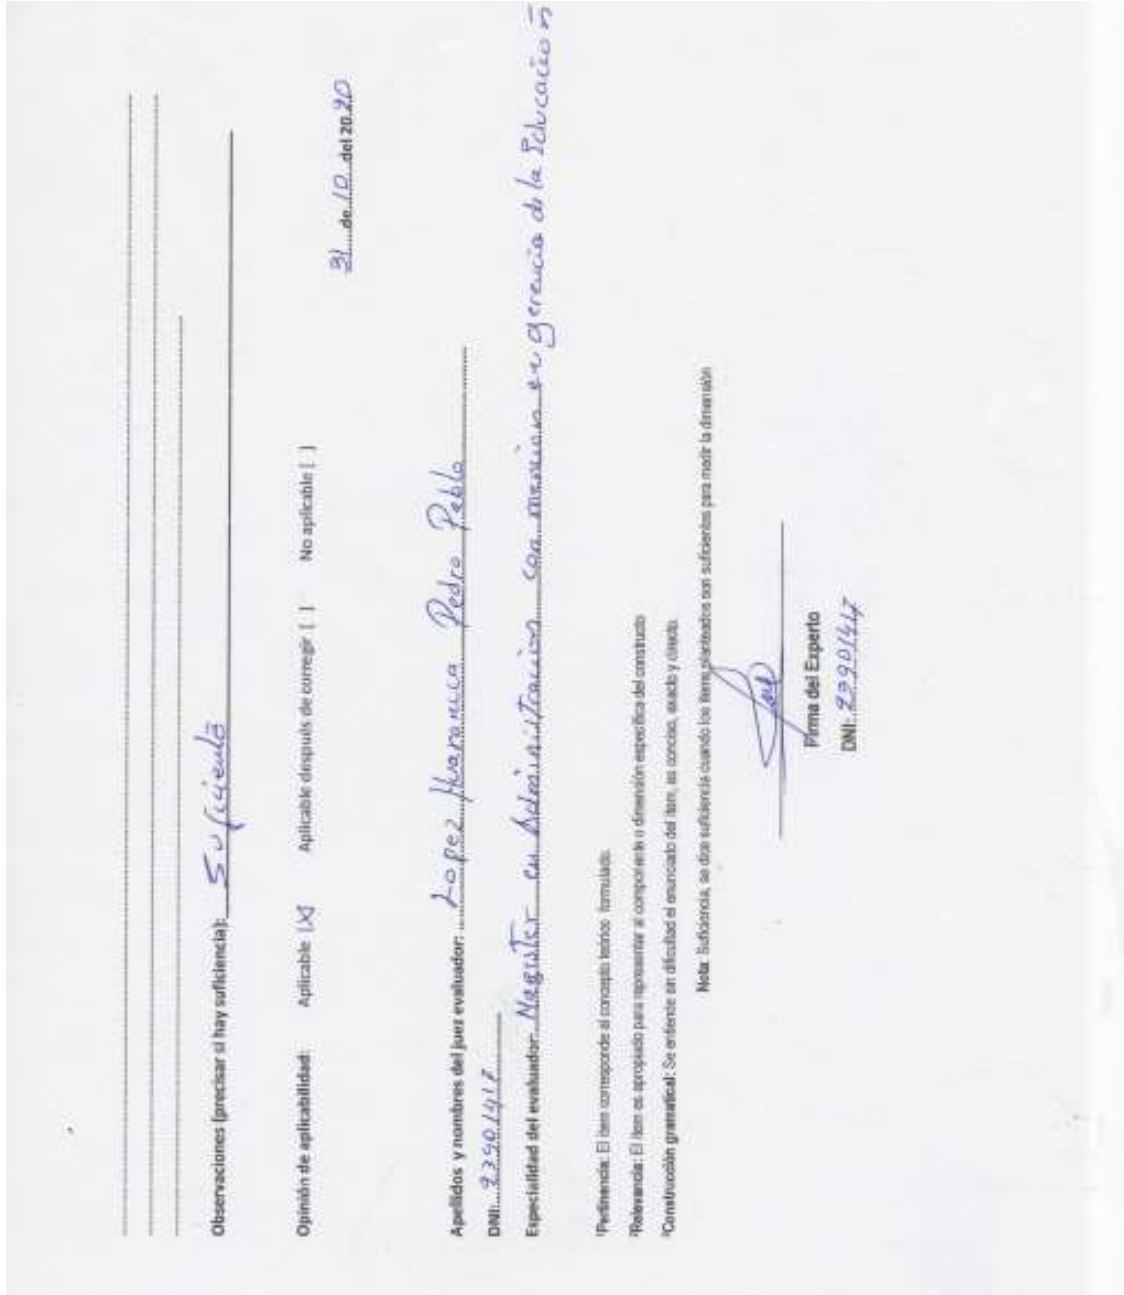 Observaciones (precisar si hay suficiencia): Suficiente
Opinión de aplicabilidad: Aplicable [X] Aplicable después de corregir [ ] No aplicable [ ]
31 de 10 del 2020
Apellidos y nombres del juez evaluador: Lopez Huaranca Pedro Pablo
DNI: 23901417
Especialidad del evaluador: Magister en Administración con mención en gerencia de la Educación
¹Pertinencia: El ítem corresponde al concepto teórico formulado.
²Relevancia: El ítem es apropiado para representar al componente o dimensión específica del constructo
³Construcción gramatical: Se entiende sin dificultad el enunciado del ítem, es conciso, exacto y directo.
Nota: Suficiencia, se dice suficiencia cuando los ítems planteados son suficientes para medir la dimensión
Firma del Experto
DNI: 23901417